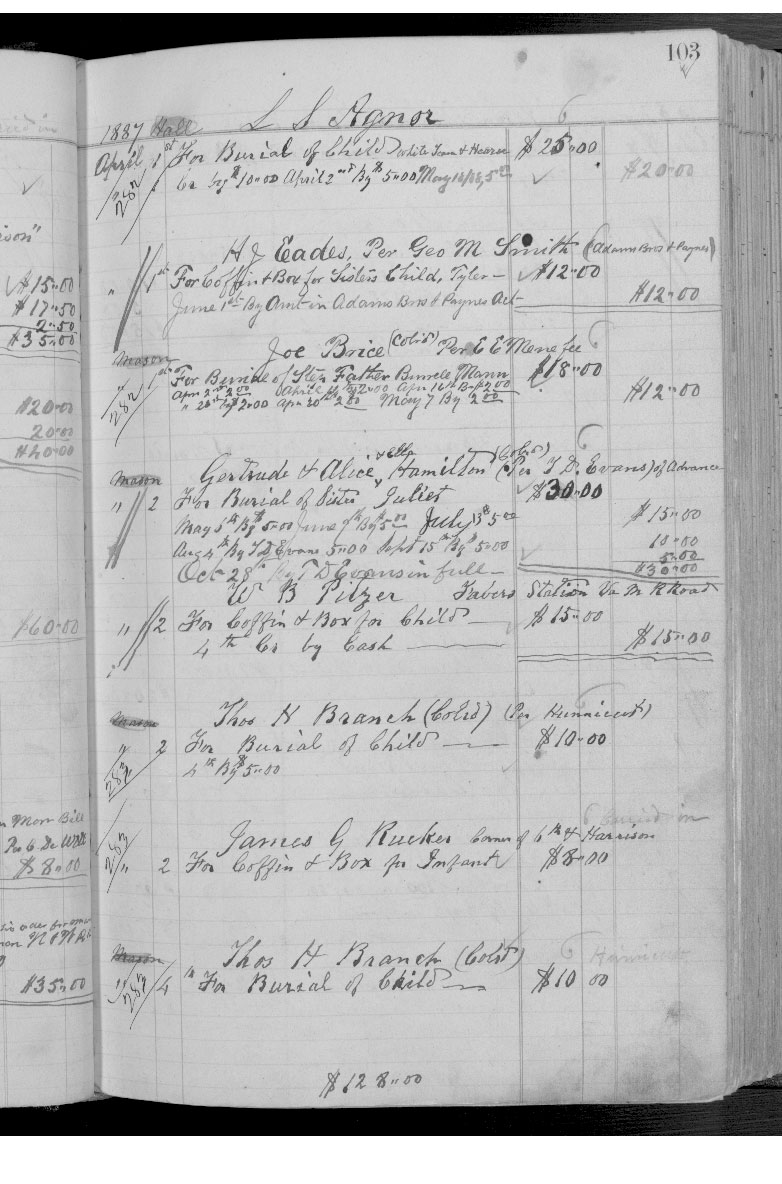 103
1887 Hall L S Agnor
April 1st For Burial of Child White Town & Hearse $25.00
282 Cr by $10.00 April 2nd By $5.00 May 14/88, 5.00 $20.00
H J Eades, Per Geo M Smith (Adams Bros & Paynes)
" 1st For Coffin & Box for Sisters Child, Tyler — $12.00
June 1st By Amt in Adams Bros & Paynes Act $12.00
Mason Joe Brice (Cold) Per E E Menefee
" 1st For Burial of Step Father Burrell Mann $18.00
282 Apr 2nd 2.00 April 9th By $2.00 Apr 16th By $2.00 $12.00
" 20th By $2.00 Apr 30th 2.00 May 7 By 2.00
& Ella
Mason Gertrude & Alice, Hamilton (Cold) (Per T D. Evans) of Advance
" 2 For Burial of Sister Juliet $30.00
May 5th By $5.00 June 9th By $5.00 July 13 $5.00 $15.00
Aug 4th By T D Evans 5.00 Sept 15th By $5.00 10.00
5.00
Oct 28th By T D Evans in full — $30.00
W B Pilzer Fabers Station Va M R Road
" 2 For Coffin & Box for Child — $15.00
4th Cr by Cash — $15.00
Mason Thos H Branch (Cold) (Per Hunnicut)
" 2 For Burial of Child — $10.00
282 4th By $5.00
James G Rucker Corner of 6th & Harrison
282
" 2 For Coffin & Box for Infant $8.00
Mason Thos H Branch (Cold)
" 282 4th For Burial of Child — $10 00
$128.00
$15.00
$17.50
2.50
$35.00
$20.00
20.00
$40.00
$60.00
Mon Bill
$8.00
$35.00